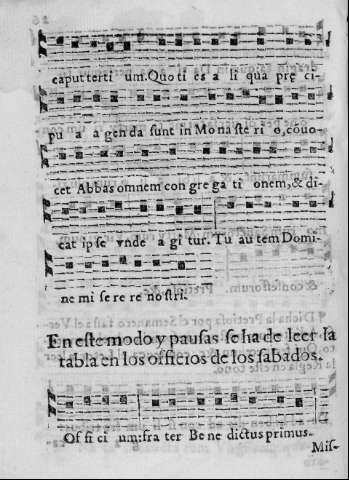 caput terti um. Quo ti es a li qua prę ci-
pu a a gen da sunt in Mo na ste ri o, co uo-
cet Abbas omnem con gre ga ti onem, & di-
cat ip se vnde a gi tur. Tu au tem Domi-
ne mi se re re no stri.
En este modo y pausas se ha de leer la
tabla en los officios de los sabados.
Of fi ci um: fra ter Be ne dictus primus.
Mis-